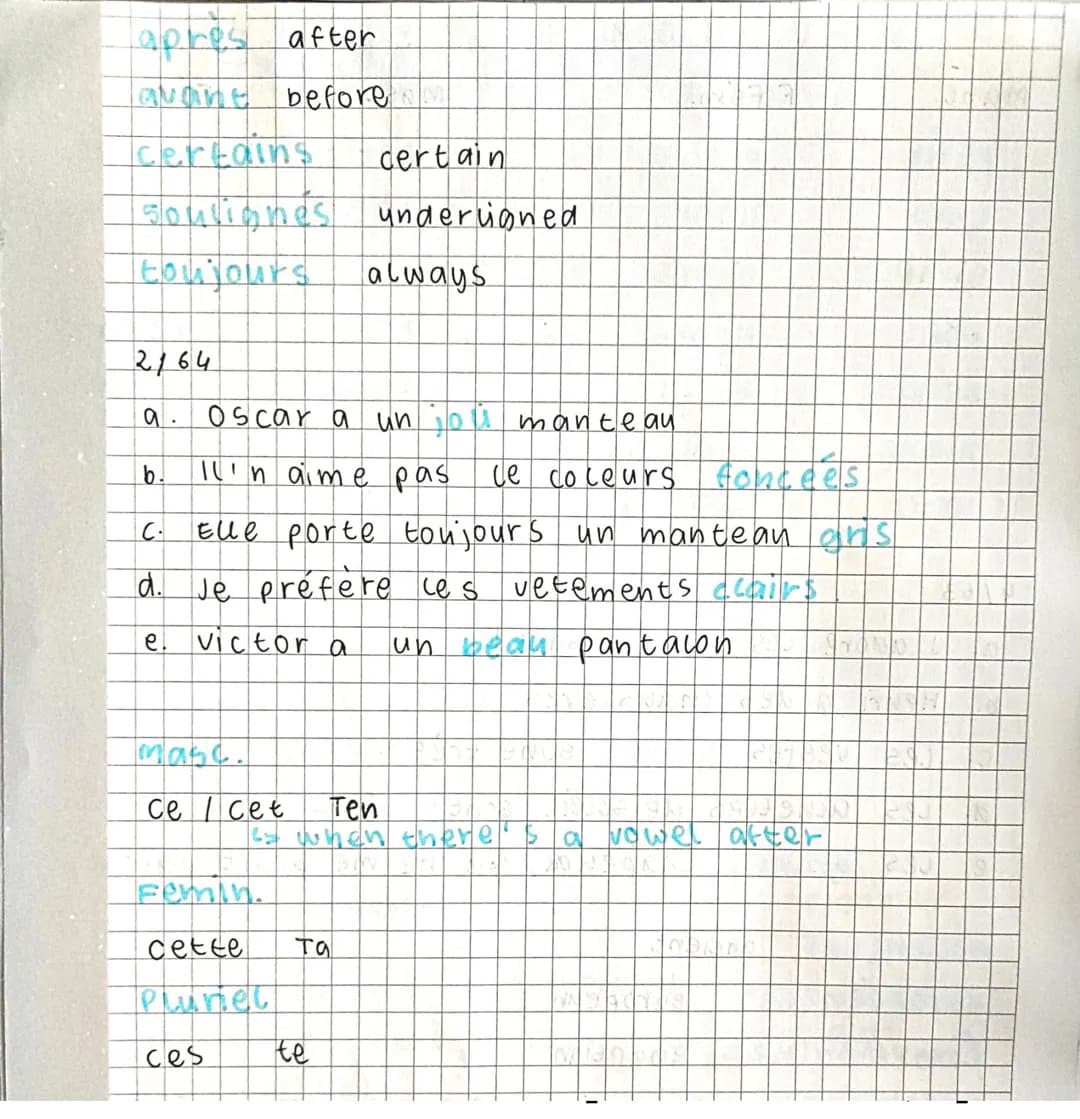 après after
avant before
certains certain
soulignés underligned
toujours always
2/64
a. Oscar a un joli manteau
b. Il'n aime pas le coleurs foncées
c. Elle porte toujours un manteau gris
d. Je préfère les vetements clairs
e. Victor a un beau pantalon
masc.
ce / cet Ten
↳ when there's a vowel after
Femin.
cette Ta
Pluriel
ces te